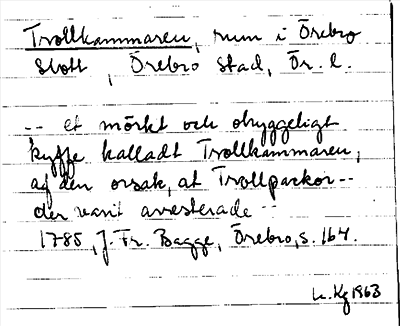 Trollkammaren, rum i Örebro
Slott, Örebro stad, Ör. l.
-- et mörkt och obyggeligt
kyffe kalladt Trollkammaren,
af den orsak, at Trollpackor --
der varit arresterade --
1785, J. Fr. Bagge, Örebro, s. 164.
1963